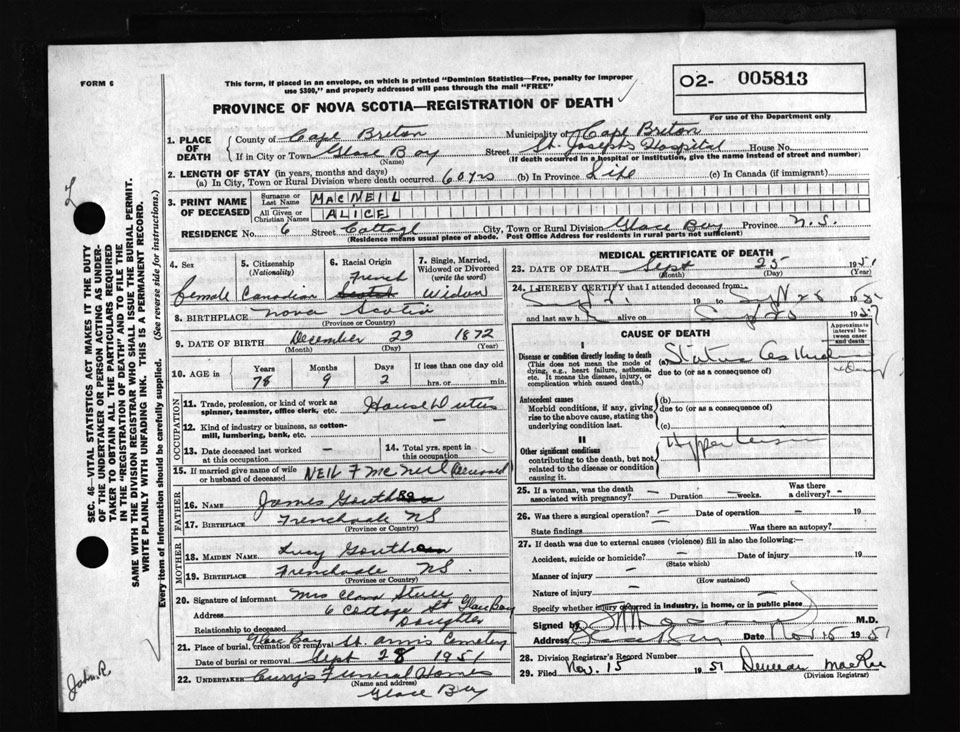 FORM 6
This form, if placed in an envelope, on which is printed "Dominion Statistics—Free, penalty for improper
use $300," and properly addressed will pass through the mail "FREE"
O2- 005813
For use of the Department only
PROVINCE OF NOVA SCOTIA—REGISTRATION OF DEATH
1. PLACE OF DEATH
County of Cape Breton Municipality of Cape Breton
If in City or Town Glace Bay Street St. Joseph's Hospital House No.
(Name) (If death occurred in a hospital or institution, give the name instead of street and number)
2. LENGTH OF STAY (in years, months and days)
(a) In City, Town or Rural Division where death occurred 60 yrs (b) In Province Life (c) In Canada (if immigrant)
3. PRINT NAME OF DECEASED
Surname or Last Name MACNEIL
All Given or Christian Names ALICE
RESIDENCE No. 6 Street Cottage City, Town or Rural Division Glace Bay Province N.S.
(Residence means usual place of abode. Post Office Address for residents in rural parts not sufficient)
4. Sex 5. Citizenship (Nationality) 6. Racial Origin 7. Single, Married, Widowed or Divorced (write the word)
French
Female Canadian Scotch Widow
8. BIRTHPLACE Nova Scotia
(Province or Country)
9. DATE OF BIRTH December 23 1872
(Month) (Day) (Year)
10. AGE in Years Months Days If less than one day old
78 9 2 hrs. or min.
OCCUPATION
11. Trade, profession, or kind of work as spinner, teamster, office clerk, etc. House Duties
12. Kind of industry or business, as cotton-mill, lumbering, bank, etc. —
13. Date deceased last worked at this occupation — 14. Total yrs. spent in this occupation
15. If married give name of wife or husband of deceased NEIL F McNeil (Deceased)
FATHER
16. NAME James
17. BIRTHPLACE Frenchvale NS
(Province or Country)
MOTHER
18. MAIDEN NAME Lucy
19. BIRTHPLACE Frenchvale NS.
(Province or Country)
20. Signature of informant Mrs Clara
Address 6 Cottage St Glace Bay
Relationship to deceased Daughter
21. Place of burial, cremation or removal Glace Bay St. Anns Cemetery
Date of burial or removal Sept 28 1951
22. UNDERTAKER Curry's Funeral Homes
(Name and address)
Glace Bay
MEDICAL CERTIFICATE OF DEATH
23. DATE OF DEATH Sept 25 1951
(Month) (Day)
24. I HEREBY CERTIFY that I attended deceased from:
19 to 1951
and last saw h alive on 1951
CAUSE OF DEATH
Approximate interval between onset and death
I
Disease or condition directly leading to death (a)
(This does not mean the mode of dying, e.g., heart failure, asthenia, etc. It means the disease, injury, or complication which caused death.) due to (or as a consequence of)
Antecedent causes (b)
Morbid conditions, if any, giving rise to the above cause, stating the underlying condition last. due to (or as a consequence of)
(c)
II
Other significant conditions contributing to the death, but not related to the disease or condition causing it. Hypertension
25. If a woman, was the death associated with pregnancy? — Duration — weeks. Was there a delivery? -
26. Was there a surgical operation? — Date of operation — 19
State findings Was there an autopsy?
27. If death was due to external causes (violence) fill in also the following:—
Accident, suicide or homicide? — Date of injury 19
(State which)
Manner of injury —
(How sustained)
Nature of injury —
Specify whether injury occurred in industry, in home, or in public place
Signed by M.D.
Address Glace Bay Date Nov 15 1951
28. Division Registrar's Record Number
29. Filed Nov. 15 1951 Duncan MacRae
(Division Registrar)
SEC. 46—VITAL STATISTICS ACT MAKES IT THE DUTY
OF THE UNDERTAKER OR PERSON ACTING AS UNDER-
TAKER TO OBTAIN ALL THE PARTICULARS REQUIRED
IN THE "REGISTRATION OF DEATH" AND TO FILE THE
SAME WITH THE DIVISION REGISTRAR WHO SHALL ISSUE THE BURIAL PERMIT.
WRITE PLAINLY WITH UNFADING INK. THIS IS A PERMANENT RECORD.
Every item of information should be carefully supplied. (See reverse side for instructions.)
John R.